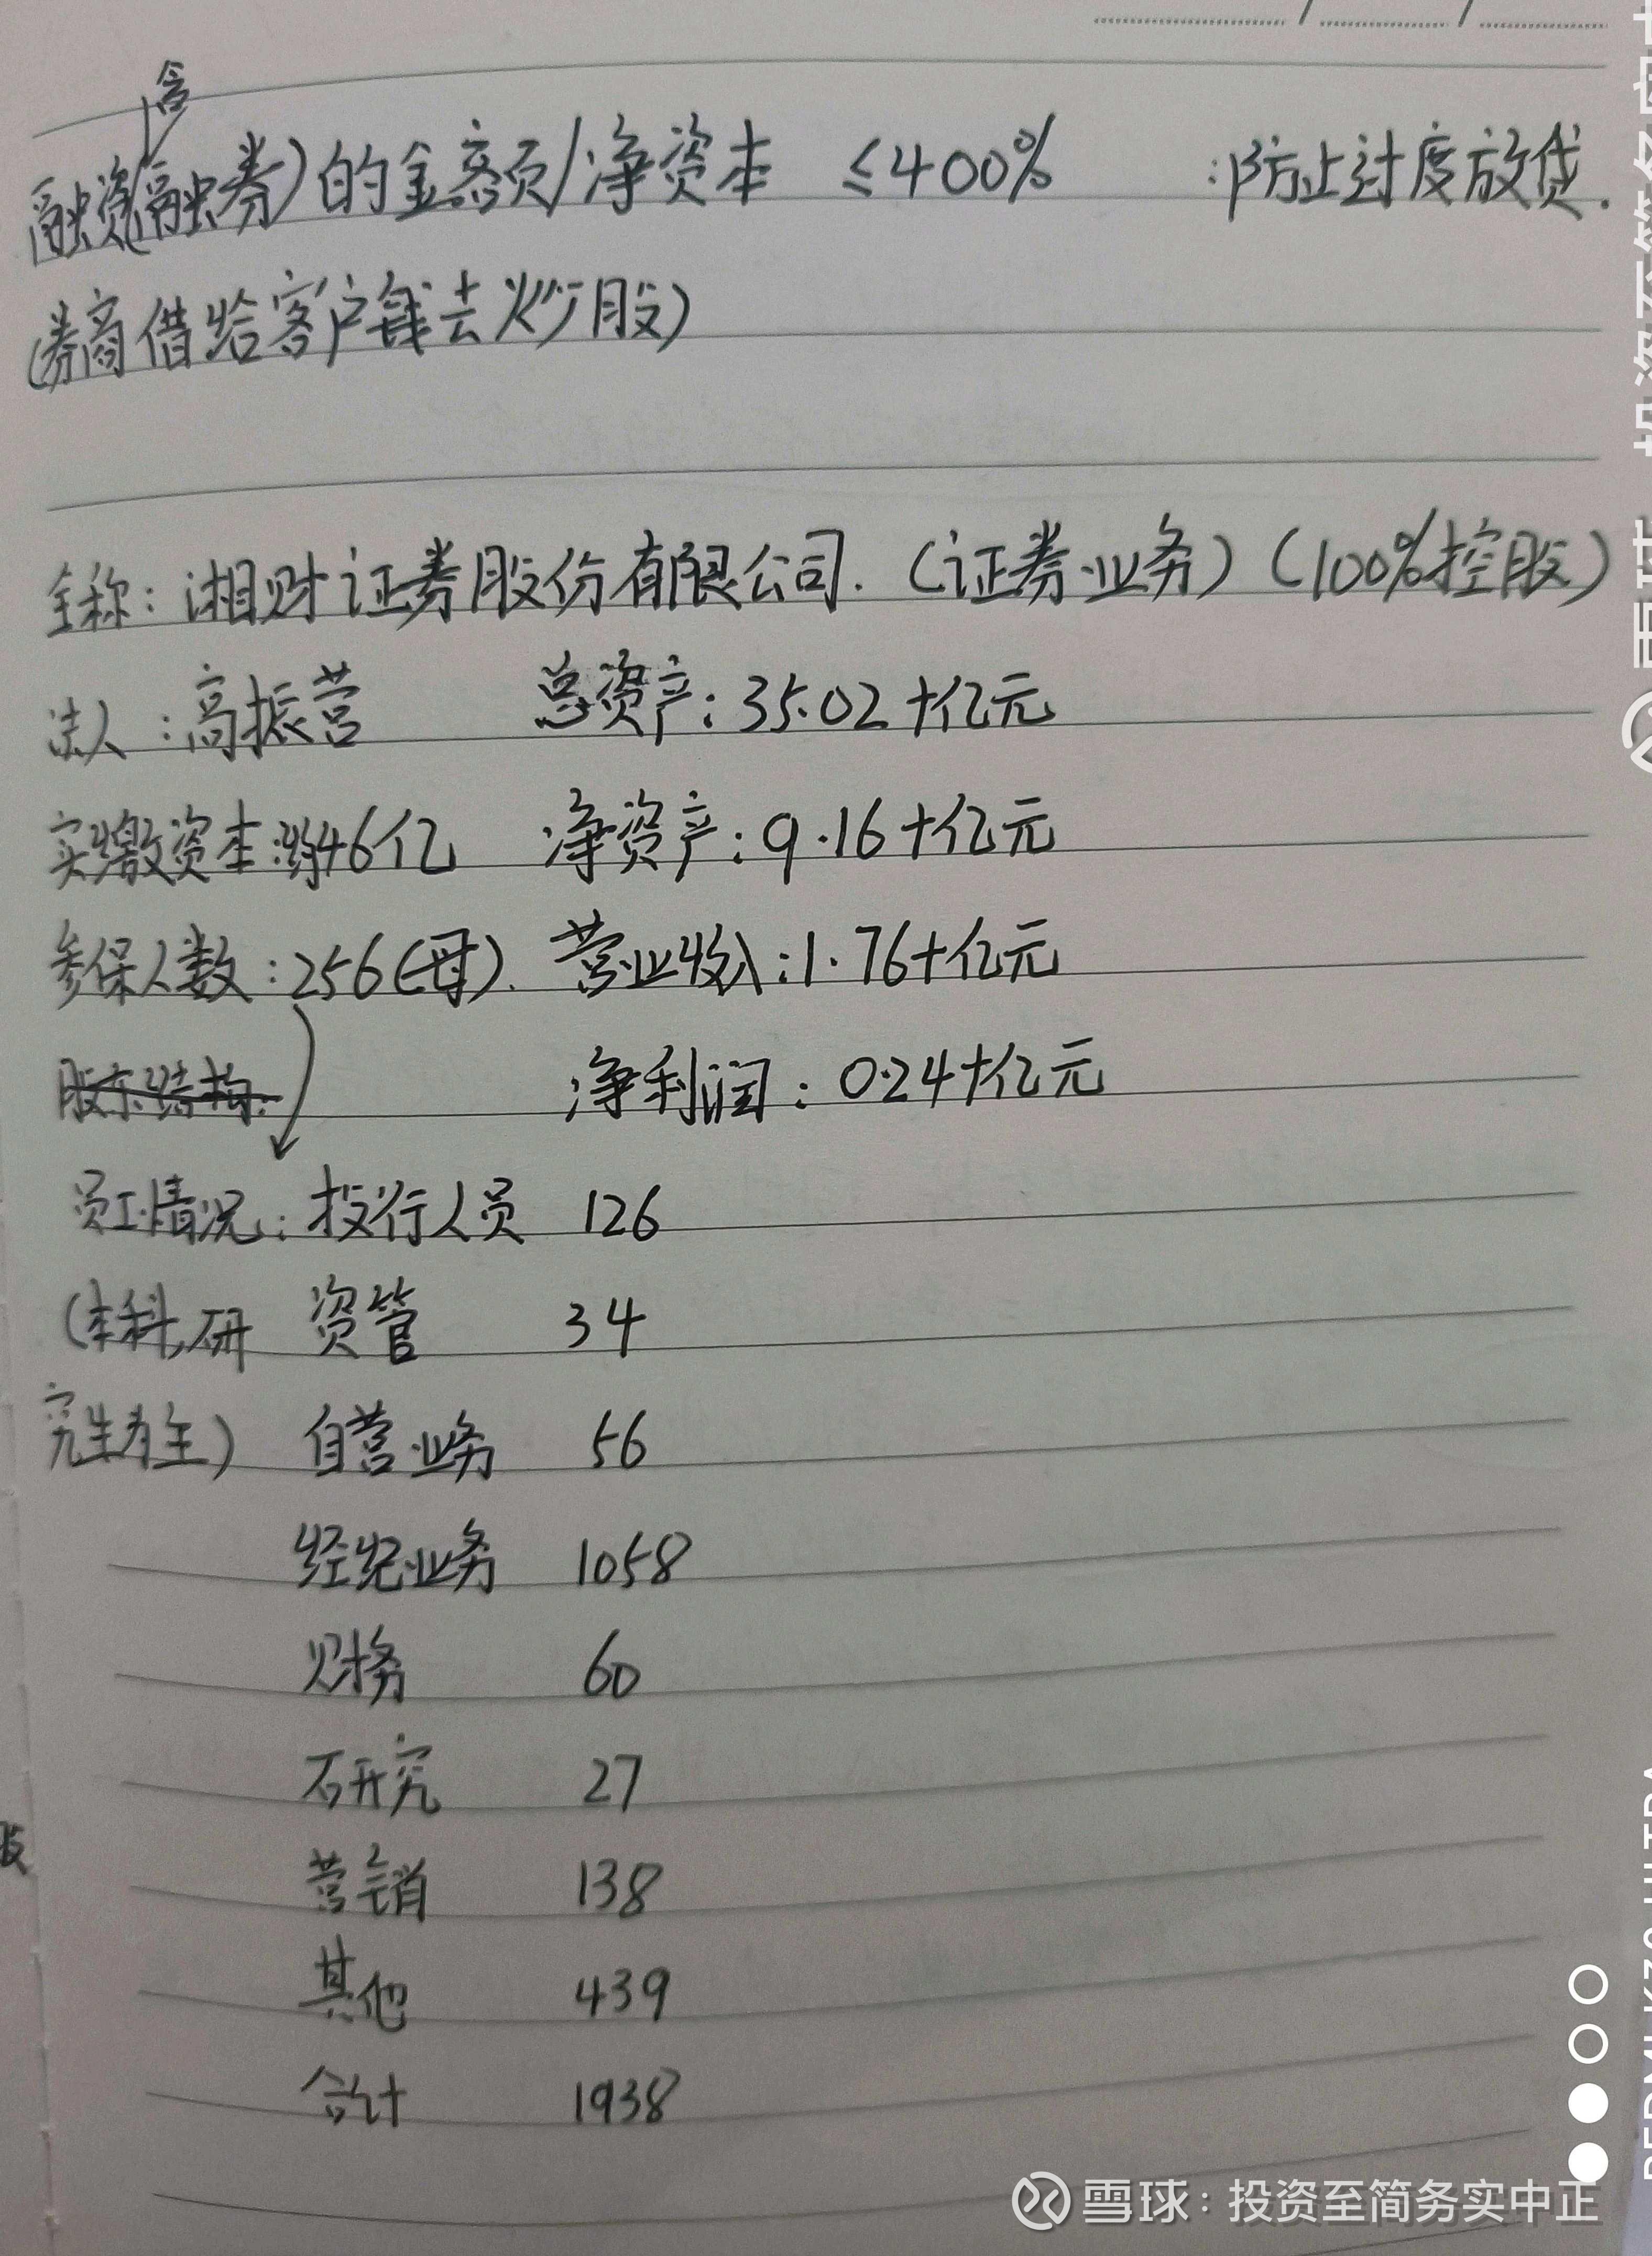 含
融资(融券)的金额/净资本 ≤400% :防止过度放贷.
(券商借给客户钱去炒股)
全称:湘财证券股份有限公司.(证券业务)(100%控股)
法人:高振营 总资产:35.02十亿元
实缴资本:约46亿 净资产:9.16十亿元
参保人数:256(母). 营业收入:1.76十亿元
股东结构. 净利润:0.24十亿元
员工情况:投行人员 126
(本科,研 资管 34
究生为主) 自营业务 56
经纪业务 1058
财务 60
研究 27
营销 138
其他 439
合计 1938
雪球:投资至简务实中正